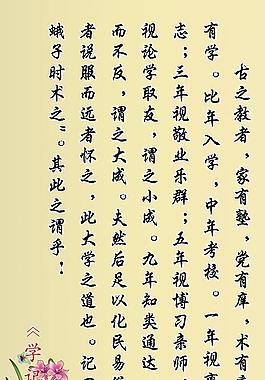 古之教者，家有塾，党有庠，术有
有学。比年入学，中年考校。一年视
志；三年视敬业乐群；五年视博习亲师
视论学取友，谓之小成。九年知类通达
而不反，谓之大成。夫然后足以化民易
者说服而远者怀之，此大学之道也。记
蛾子时术之”。其此之谓乎！
《学记